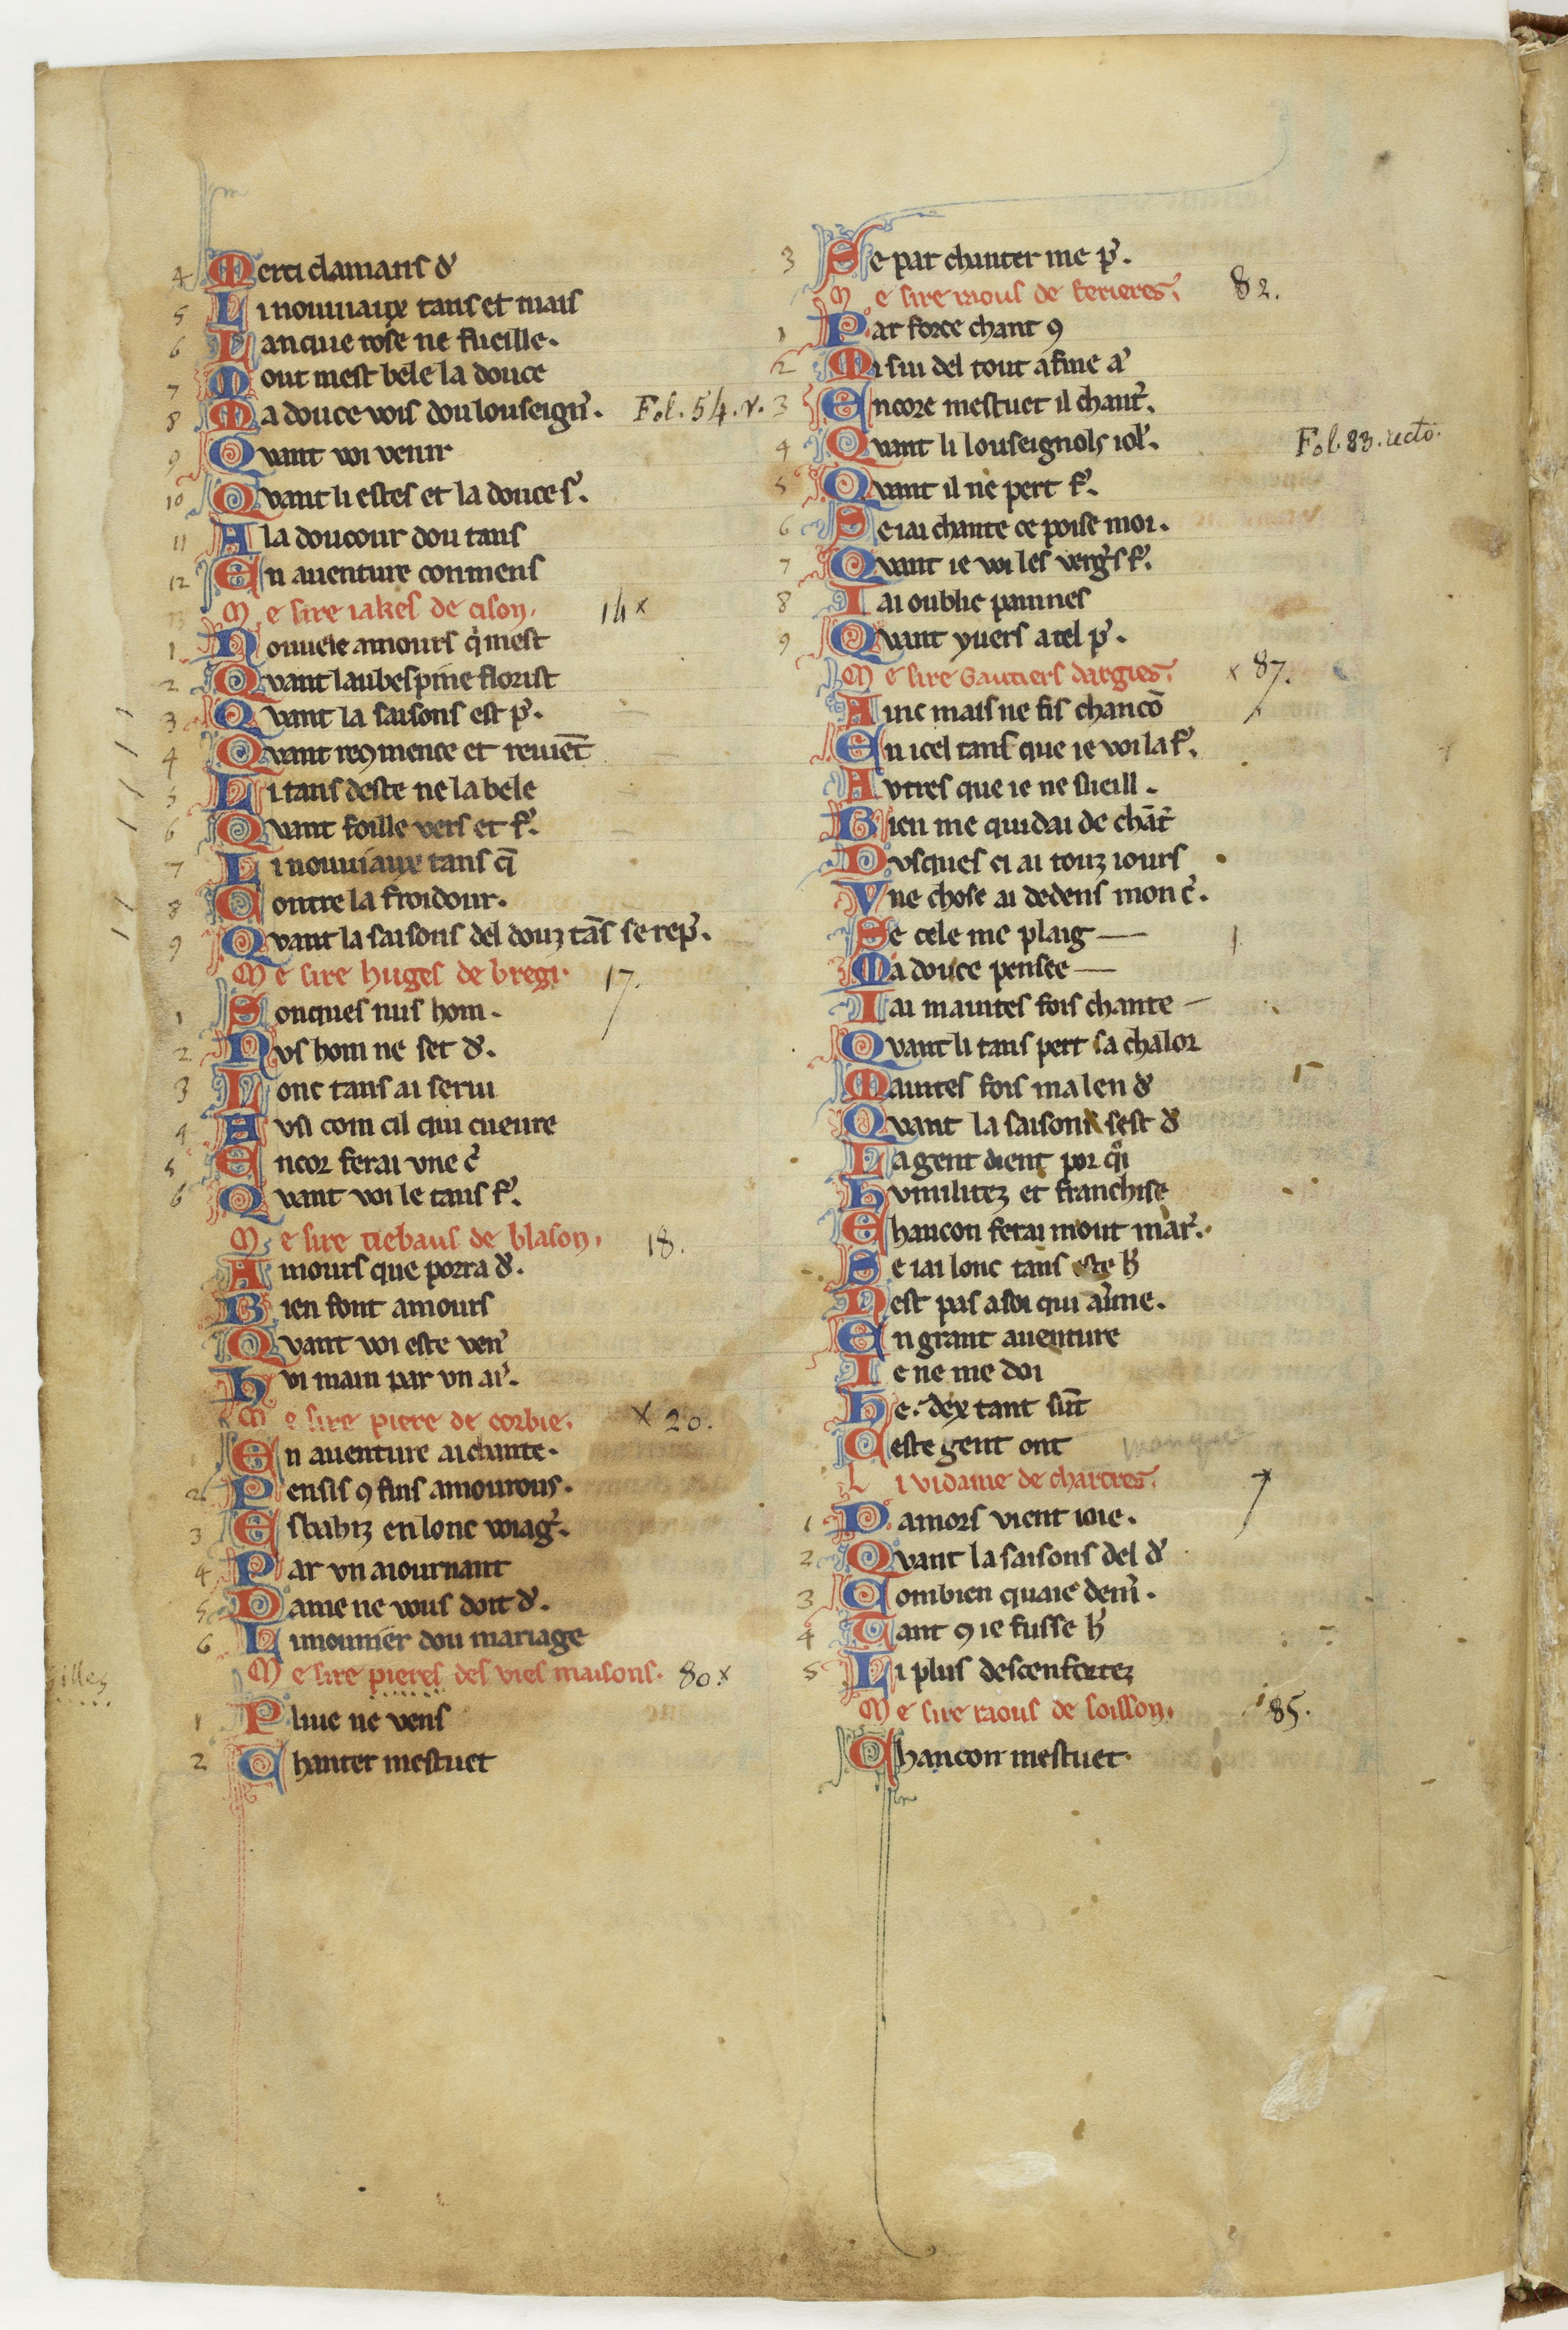 4 Merci clamans d'
5 Li nouuiaux tans et mais
6 Lanque rose ne fueille.
7 Mout mest bele la douce
8 Ma douce vois dou louseign'. Fol. 54. v.
9 Quant voi venir
10 Quant li estes et la douce s'.
11 A la doucour dou tans
12 En auenture conmens
Me sire iakes de cison. 14 x
1 Nouuele amours q' mest
2 Quant laubespine florist
3 Quant la saisons est p'.
4 Quant reꝯmence et reuiēt
5 Li tans deste ne la bele
6 Quant foille vers et f'.
7 Li nouuiaux tans q̄
8 Contre la froidour.
9 Quant la saisons del douz tās se rep'.
Me sire huges de bregi. 17.
1 Sonques nus hom.
2 Nus hom ne set d'.
3 Lonc tans ai serui
4 Ausi com cil qui cueure
5 Encor ferai vne c'
6 Quant voi le tans f'.
Me sire tiebaus de blason. 18.
Amours que porra d'.
Bien font amours
Quant voi este ven'
Hui main par vn ai'.
Me sire piere de corbie. x 20.
En auenture ai chante.
2 Pensis ꝯ fins amourous.
3 Esbahiz en lonc voiag'.
4 Par vn aiournant
5 Dame ne vous doit d'.
6 Limounier dou mariage
Me sire pieres des vies maisons. 80 x
1 Pluie ne vens
2 Chanter mestuet
3 Se par chanter me p'.
Me sire raous de ferieres. 82.
1 Par force chant ꝯ
2 Si sui del tout a fine a'
3 Encore mestuet il chant'.
4 Quant li louseignols iol'. Fol. 83. recto.
5 Quant il ne pert f'.
6 Se iai chante ce poise moi.
7 Quant ie voi les verg's f'.
8 Iai oublie painnes
9 Quant yuers a tel p'.
Me sire Gautiers dargies. x 87.
Ainc mais ne fis chancō
En icel tans que ie voi la f'.
Autres que ie ne sueill.
Bien me quidai de chāt'
Dusques ci ai touz iours
Vne chose ai dedens mon c'.
Se cele me plaig
Ma douce pensee
Iai maintes fois chante
Quant li tans pert sa chalor
Maintes fois ma len d'
Quant la saisons sest d'
La gent dient por q'i
Humilitez et franchise
Chancon ferai mout mar'.
Se iai lonc tans este h'
Nest pas a soi qui aīme.
En grant auenture
Ie ne me doi
He. dex tant sūt
Ceste gent ont manque
Li vidame de chartres.
1 Damors vient ioie.
2 Quant la saisons del d'
3 Combien quaie dem'.
4 Tant ꝯ ie fusse h'
5 Li plus desconfortez
Me sire raous de soisson. 85.
Chancon mestuet.